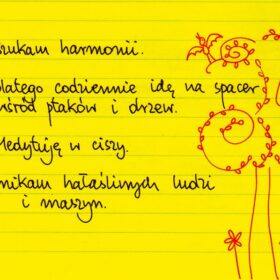 szukam harmonii.
dlatego codziennie idę na spacer
wśród ptaków i drzew.
Medytuję w ciszy.
nikam hałaśliwych ludzi
i maszyn.